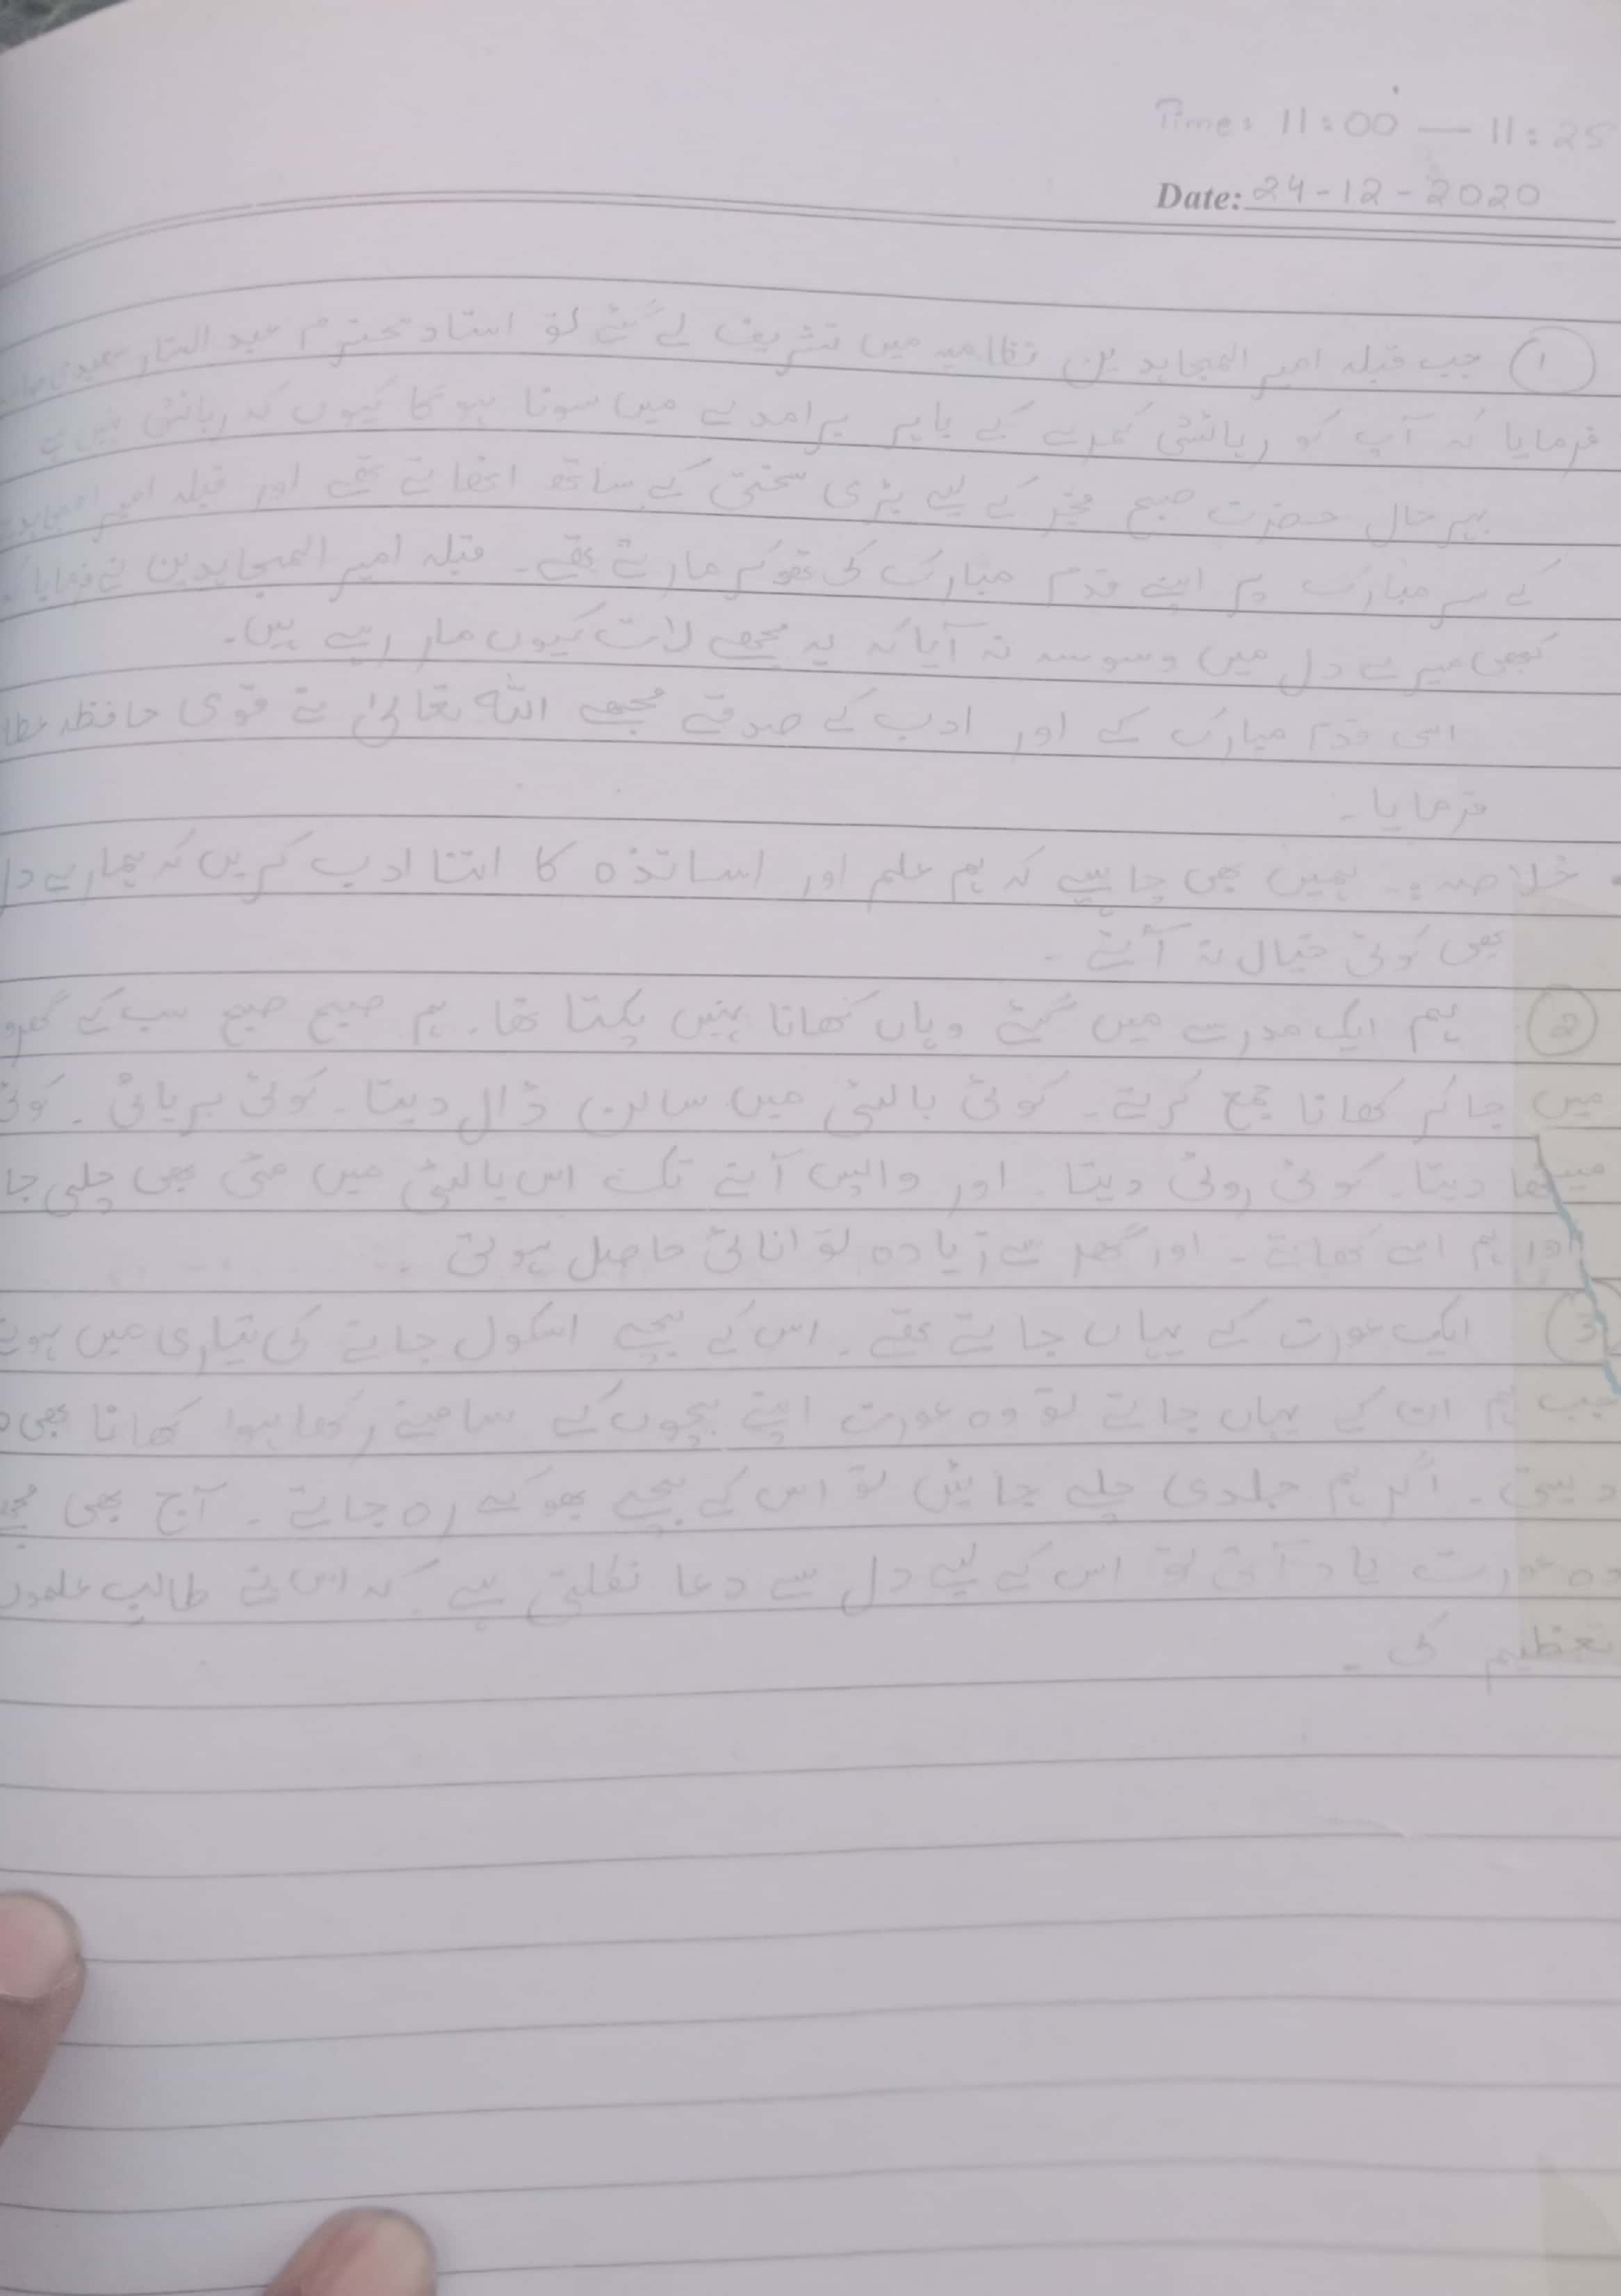 Time: 11:00 — 11:25
Date: 24-12-2020
① جب قبلہ امیر المجاہدین نظامیہ میں تشریف لے گئے تو استاد محترم عبد الستار
فرمایا کہ آپ کو رہائشی کمرے کے باہر برامدے میں سونا ہو گا کیوں کہ رہائش نہیں ہے
بہرحال حضرت صبح فجر کے لیے بڑی سختی کے ساتھ اٹھاتے تھے اور قبلہ امیر المجاہدین
کے سر مبارک پر اپنے قدم مبارک کی ٹھوکر مارتے تھے۔ قبلہ امیر المجاہدین نے فرمایا کہ
کبھی میرے دل میں وسوسہ نہ آیا کہ یہ مجھے لات کیوں مار رہے ہیں۔
اسی قدم مبارک کے اور ادب کے صدقے مجھے اللہ تعالیٰ نے قوی حافظہ عطا
فرمایا۔
خلاصہ:۔ ہمیں بھی چاہیے کہ ہم علم اور اساتذہ کا اتنا ادب کریں کہ ہمارے دل
بھی کوئی خیال نہ آئے۔
② ہم ایک مدرسے میں گئے وہاں کھانا نہیں پکتا تھا۔ ہم صبح صبح سب کے گھرو
میں جا کر کھانا جمع کرتے۔ کوئی بالٹی میں سالن ڈال دیتا۔ کوئی بریانی۔ کوئی
میٹھا دیتا۔ کوئی روٹی دیتا۔ اور واپس آتے تک اس بالٹی میں مٹی بھی چلی جا
اور ہم اسے کھاتے۔ اور گھر سے زیادہ توانائی حاصل ہوتی۔
③ ایک عورت کے یہاں جاتے تھے۔ اس کے بچے اسکول جانے کی تیاری میں ہوتے
جب ہم ان کے یہاں جاتے تو وہ عورت اپنے بچوں کے سامنے رکھا ہوا کھانا بھی
دیتی۔ اگر ہم جلدی چلے جائیں تو اس کے بچے بھوکے رہ جاتے۔ آج بھی مجھے
وہ عورت یاد آتی تو اس کے لیے دل سے دعا نکلتی ہے کہ اس نے طالب علموں
تعظیم کی۔